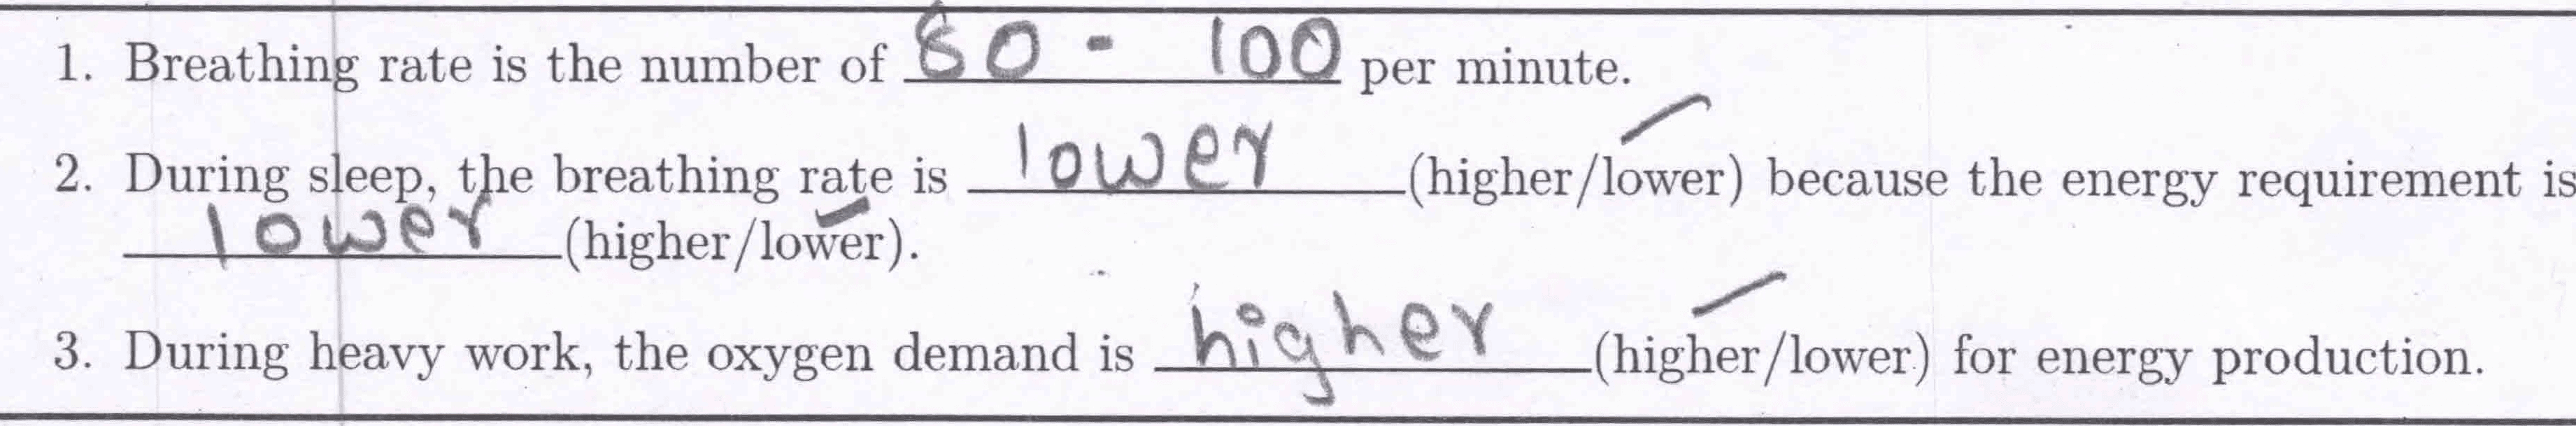 1. Breathing rate is the number of 80 - 100 per minute.
2. During sleep, the breathing rate is lower (higher/lower) because the energy requirement is
lower (higher/lower).
3. During heavy work, the oxygen demand is higher (higher/lower) for energy production.